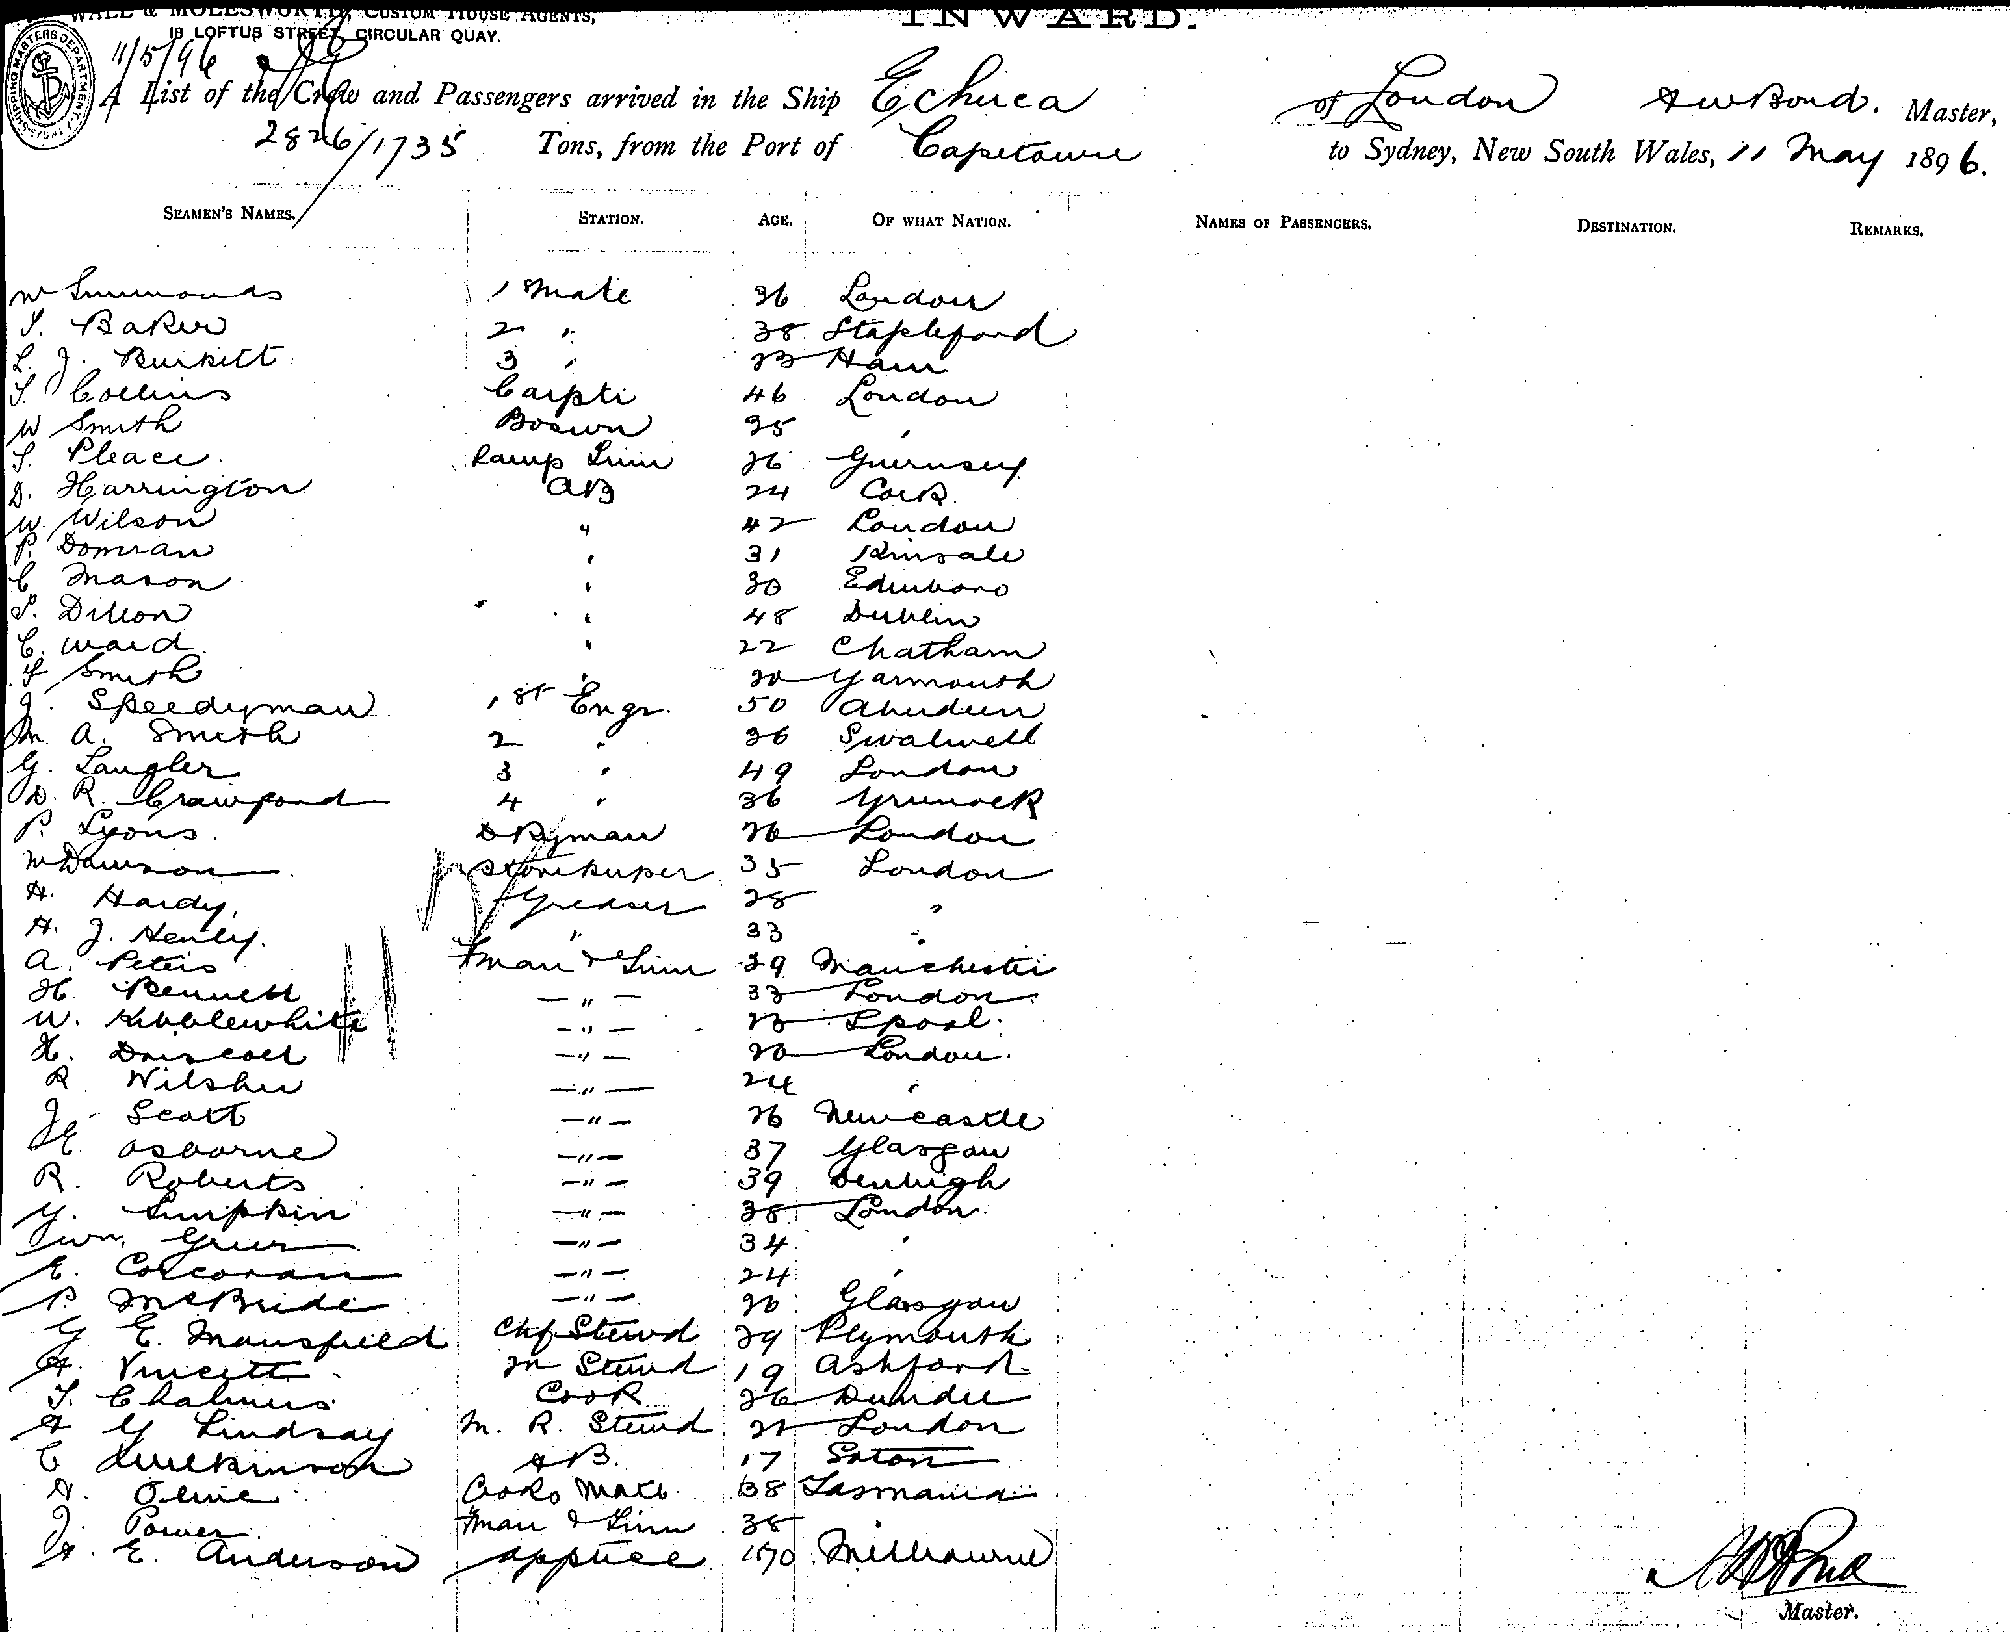 WALL & MOLESWORTH, CUSTOM HOUSE AGENTS,
18 LOFTUS STREET, CIRCULAR QUAY.
INWARD.
11/5/96
A List of the Crew and Passengers arrived in the Ship Echuca of London AW Bond. Master,
2826/1735 Tons, from the Port of Capetown to Sydney, New South Wales, 11 May 1896.
SEAMEN'S NAMES. STATION. AGE. OF WHAT NATION. NAMES OF PASSENGERS. DESTINATION. REMARKS.
W Simmonds 1 Mate 36 London
Baker 2 " 38 Stapleford
L. J. Burkett 3 " 23 Ham
Collins 46 London
W Smith Bosun 35 "
Pleace Lamp Trim 26 Guernsey
D. Harrington AB 24 Cork
W. Wilson " 42 London
P. Donvan " 31 Kinsale
C Mason " 30 Edinboro
Dillon " 48 Dublin
C. Ward " 22 Chatham
Smith " 20 Yarmouth
J. Speedyman 1st Engr. 50 Aberdeen
M. A. Smith 2 " 36 Swalwell
G. Langler 3 " 49 London
D. R. Crawford 4 " 36 Grenock
P. Lyons DKyman 26 London
W Dawson Storekeeper 35 London
H. Hardy, Greaser 28 "
H. J. Henly. " 33 "
A. Peters Fman & Trim 29 Manchester
H. Bennett - " - 33 London
W. Kibblewhite - " - 23 Lpool.
Driscoll - " - 20 London.
R Wilsher - " - 24 "
J. Scott - " - 26 Newcastle
E. Osborne - " - 37 Glasgow
R. Roberts - " - 39 Denbigh
G. Simpkin - " - 38 London
Wm. Greer - " - 34 "
E. Corcoran - " - 24 "
P. McBride - " - 20 Glasgow
G E. Mansfield Chf Stewd 29 Plymouth
A. Vincett M Stewd 19 Ashford
Chalmers Cook 26 Dundee
A G Lindsay M. R. Stewd London
C AB. 17 Soton
Cooks Mate 38 Tasmania
J. Power Fman & Trim 38 "
A. E. Anderson apptice Melbourne
AW Bond
Master.